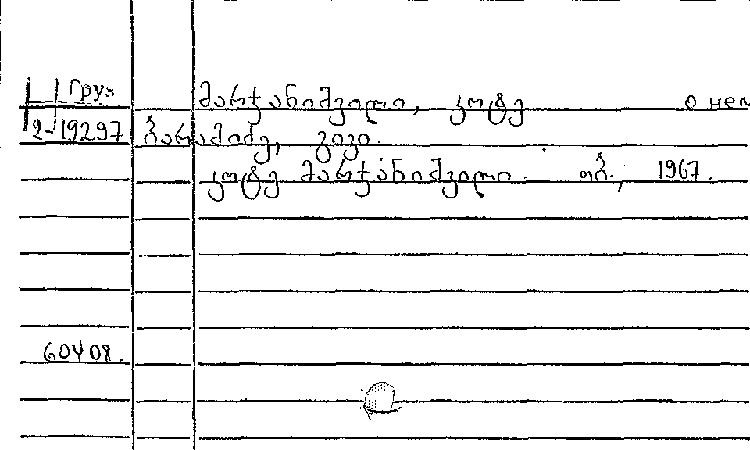 Груз
მარჯანიშვილი, კოტე о нем
2-19297 ბარამიძე, გივი.
კოტე მარჯანიშვილი. თბ., 1967.
60408.